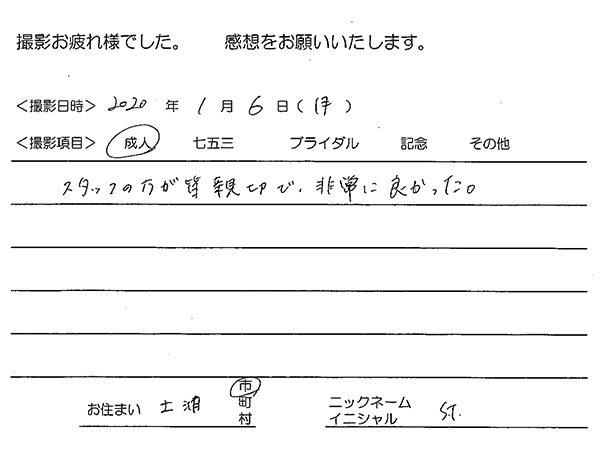 撮影お疲れ様でした。 感想をお願いいたします。
<撮影日時> 2020 年 1 月 6 日 (月)
<撮影項目> 成人 七五三 ブライダル 記念 その他
スタッフの方が皆親切で、非常に良かった。
お住まい 土浦 市 町 村
ニックネーム イニシャル S.T.